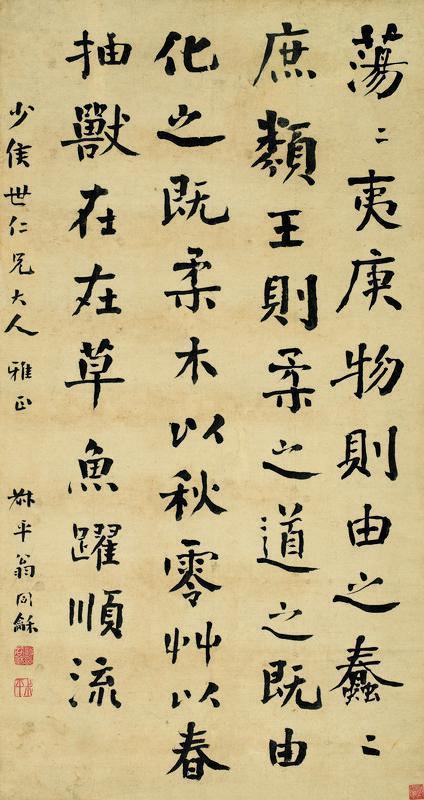 蕩〻夷庚物則由之蠢〻
庶類王則柔之道之既由
化之既柔木以秋零艸以春
抽獸在在草魚躍順流
少侯世仁兄大人雅正 叔平翁同龢